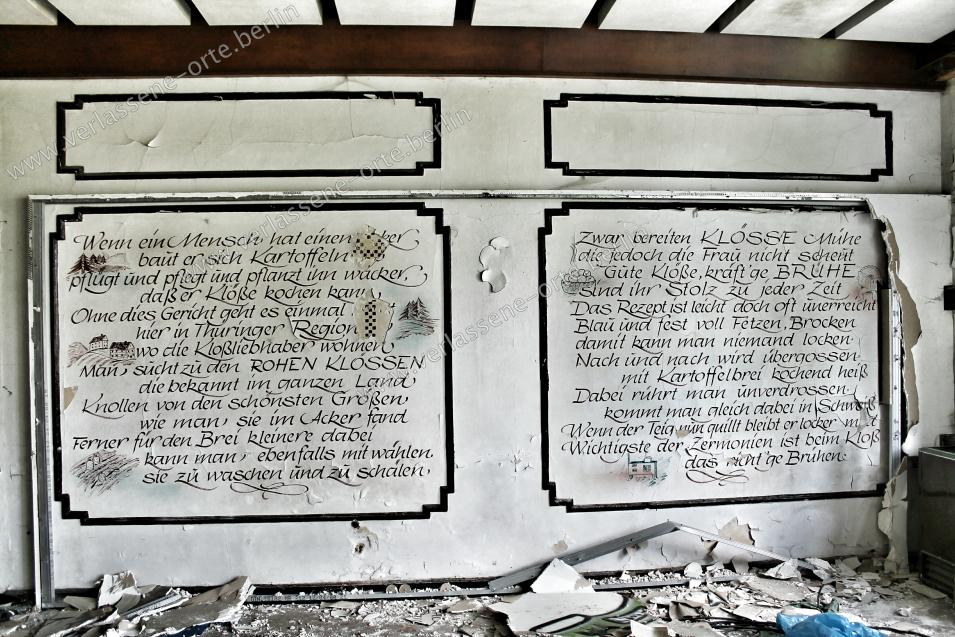 Wenn ein Mensch hat einen
baut er sich Kartoffeln
pflügt und pflegt und pflanzt ihn wacker
daß er Klöße kochen kann
Ohne dies Gericht geht es einmal
hier in Thüringer Region
wo die Kloßliebhaber wohnen
Man sucht zu den ROHEN KLÖSSEN
die bekannt im ganzen Land
Knollen von den schönsten Größen
wie man sie im Acker fand
Ferner für den Brei kleinere dabei
kann man ebenfalls mit wählen,
sie zu waschen und zu schälen,
Zwar bereiten KLÖSSE Mühe
die jedoch die Frau nicht scheut
Gute Klöße, kräft'ge BRÜHE
Sind ihr Stolz zu jeder Zeit
Das Rezept ist leicht doch oft unerreicht
Blau und fest voll Fetzen, Brocken
damit kann man niemand locken
Nach und nach wird übergossen
mit Kartoffelbrei kochend heiß
Dabei rührt man unverdrossen
kommt man gleich dabei in
Wenn der Teig nun quillt bleibt er locker
Wichtigste der Zermonien ist beim Kloß
das richt'ge Brühen
www.verlassene-orte.berlin
www.verlassene-orte.berlin